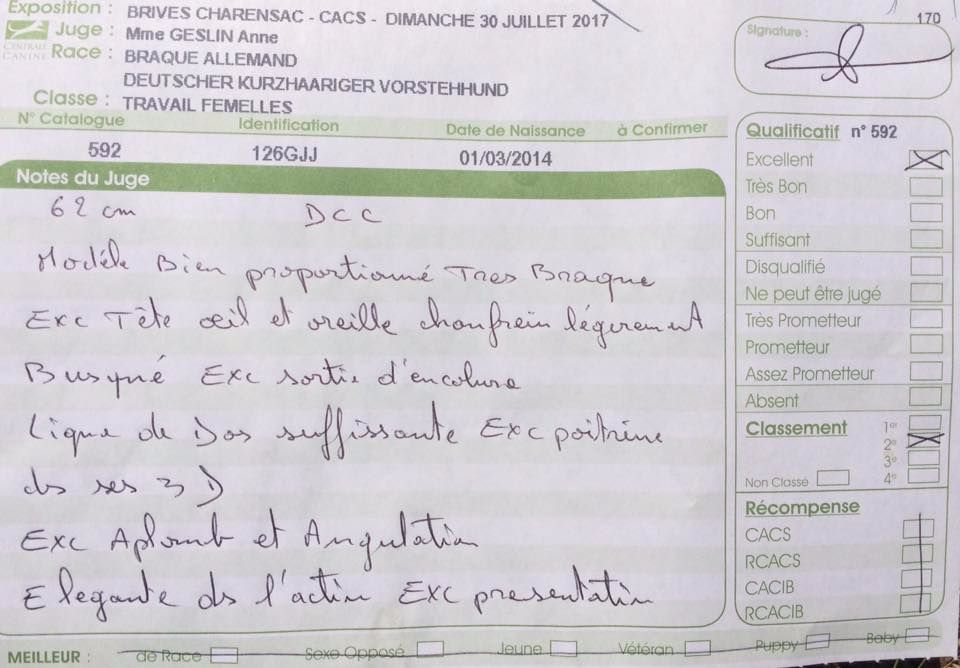 170
Exposition : BRIVES CHARENSAC - CACS - DIMANCHE 30 JUILLET 2017
Juge : Mme GESLIN Anne
CENTRALE CANINE
Race : BRAQUE ALLEMAND
DEUTSCHER KURZHAARIGER VORSTEHHUND
Classe : TRAVAIL FEMELLES
Signature :
N° Catalogue Identification Date de Naissance à Confirmer
592 126GJJ 01/03/2014
Notes du Juge
62 cm DCC
Modèle Bien proportionné Tres Braque
Exc Tête œil et oreille chanfrein légèrement
Busqué Exc sortie d'encolure
Ligne de Dos suffissante Exc poitrine
ds ses 3 D
Exc Aplomb et Angulation
Elegante ds l'action Exc presentation
Qualificatif n° 592
Excellent
Très Bon
Bon
Suffisant
Disqualifié
Ne peut être jugé
Très Prometteur
Prometteur
Assez Prometteur
Absent
Classement 1er
2e
3e
Non Classé 4e
Récompense
CACS
RCACS
CACIB
RCACIB
MEILLEUR : de Race Sexe Opposé Jeune Vétéran Puppy Baby